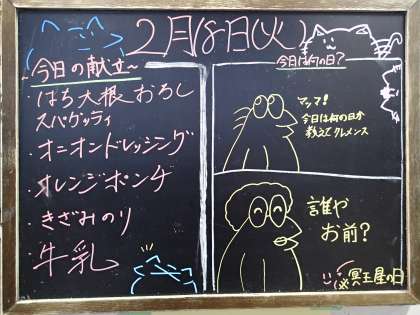 2月18日(火)
~今日の献立~
・はち大根おろし
スパゲッティ
・オニオンドレッシング
・オレンジポンチ
・きざみのり
・牛乳
今日は何の日?
マッマ!
今日は何の日か
教えてクレメンス
誰や
お前?
冥王星の日